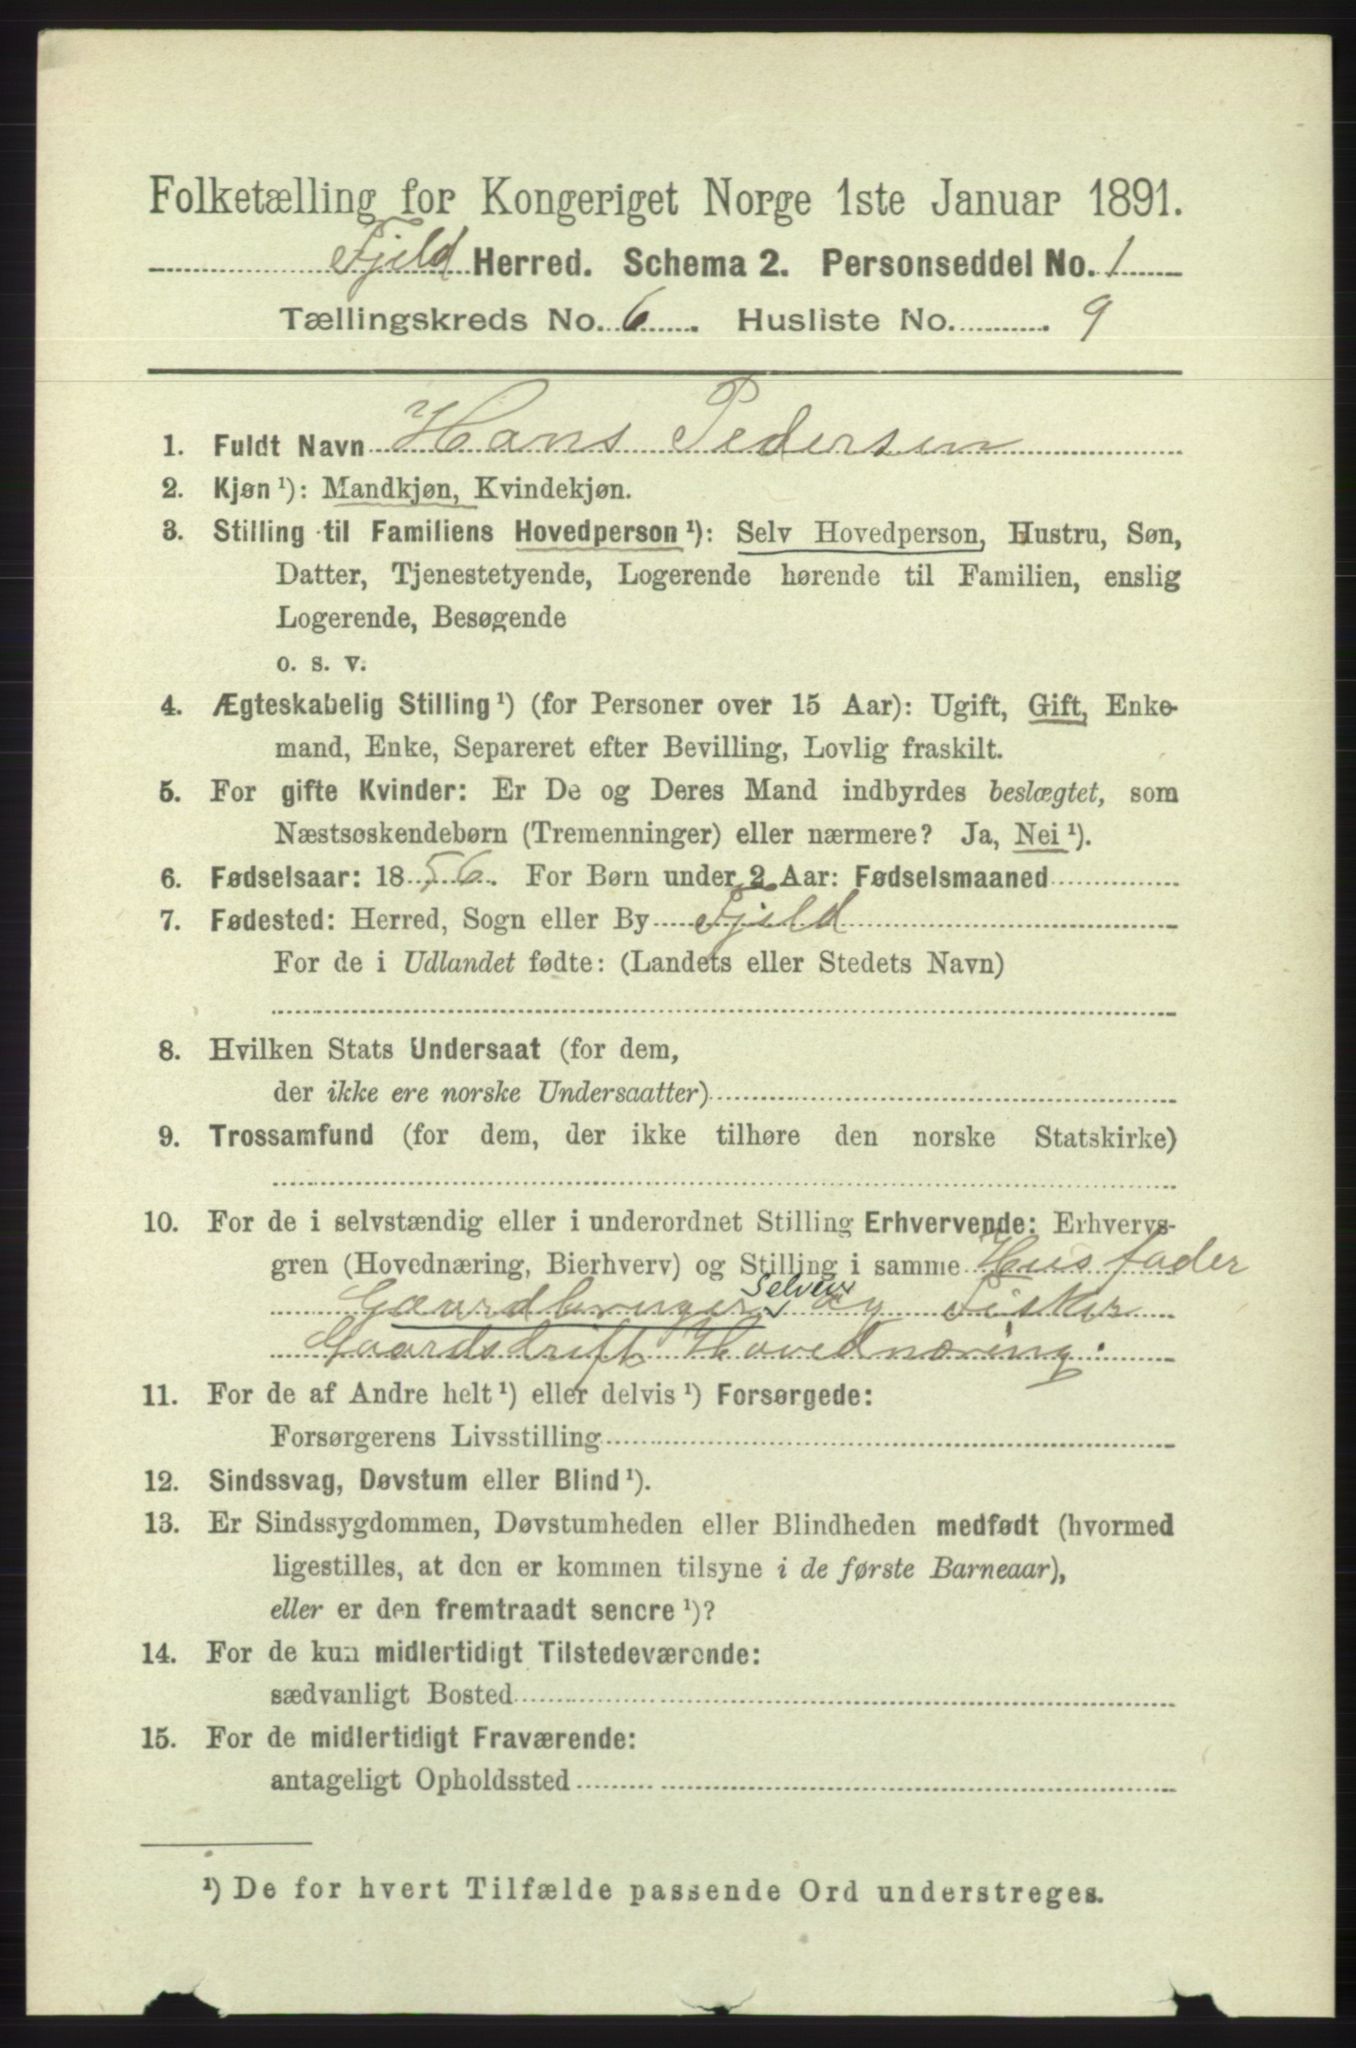 Folketælling for Kongeriget Norge 1ste Januar 1891.
Fjeld Herred. Schema 2. Personseddel No. 1
Tællingskreds No. 6. Husliste No. 9
1. Fuldt Navn Hans Pedersen
2. Kjøn¹): Mandkjøn, Kvindekjøn.
3. Stilling til Familiens Hovedperson¹): Selv Hovedperson, Hustru, Søn,
Datter, Tjenestetyende, Logerende hørende til Familien, enslig
Logerende, Besøgende
o. s. v.
4. Ægteskabelig Stilling¹) (for Personer over 15 Aar): Ugift, Gift, Enke-
mand, Enke, Separeret efter Bevilling, Lovlig fraskilt.
5. For gifte Kvinder: Er De og Deres Mand indbyrdes beslægtet, som
Næstsøskendebørn (Tremenninger) eller nærmere? Ja, Nei¹).
6. Fødselsaar: 1856. For Børn under 2 Aar: Fødselsmaaned
7. Fødested: Herred, Sogn eller By Fjeld
For de i Udlandet fødte: (Landets eller Stedets Navn)
8. Hvilken Stats Undersaat (for dem,
der ikke ere norske Undersaatter)
9. Trossamfund (for dem, der ikke tilhøre den norske Statskirke)
10. For de i selvstændig eller i underordnet Stilling Erhvervende: Erhvervs-
gren (Hovednæring, Bierhverv) og Stilling i samme Husfader
Gaardbruger Selveier og Fisker
Gaardsdrift Hovednæring.
11. For de af Andre helt¹) eller delvis¹) Forsørgede:
Forsørgerens Livsstilling
12. Sindssvag, Døvstum eller Blind¹).
13. Er Sindssygdommen, Døvstumheden eller Blindheden medfødt (hvormed
ligestilles, at den er kommen tilsyne i de første Barneaar),
eller er den fremtraadt senere¹)?
14. For de kun midlertidigt Tilstedeværende:
sædvanligt Bosted
15. For de midlertidigt Fraværende:
antageligt Opholdssted
¹) De for hvert Tilfælde passende Ord understreges.